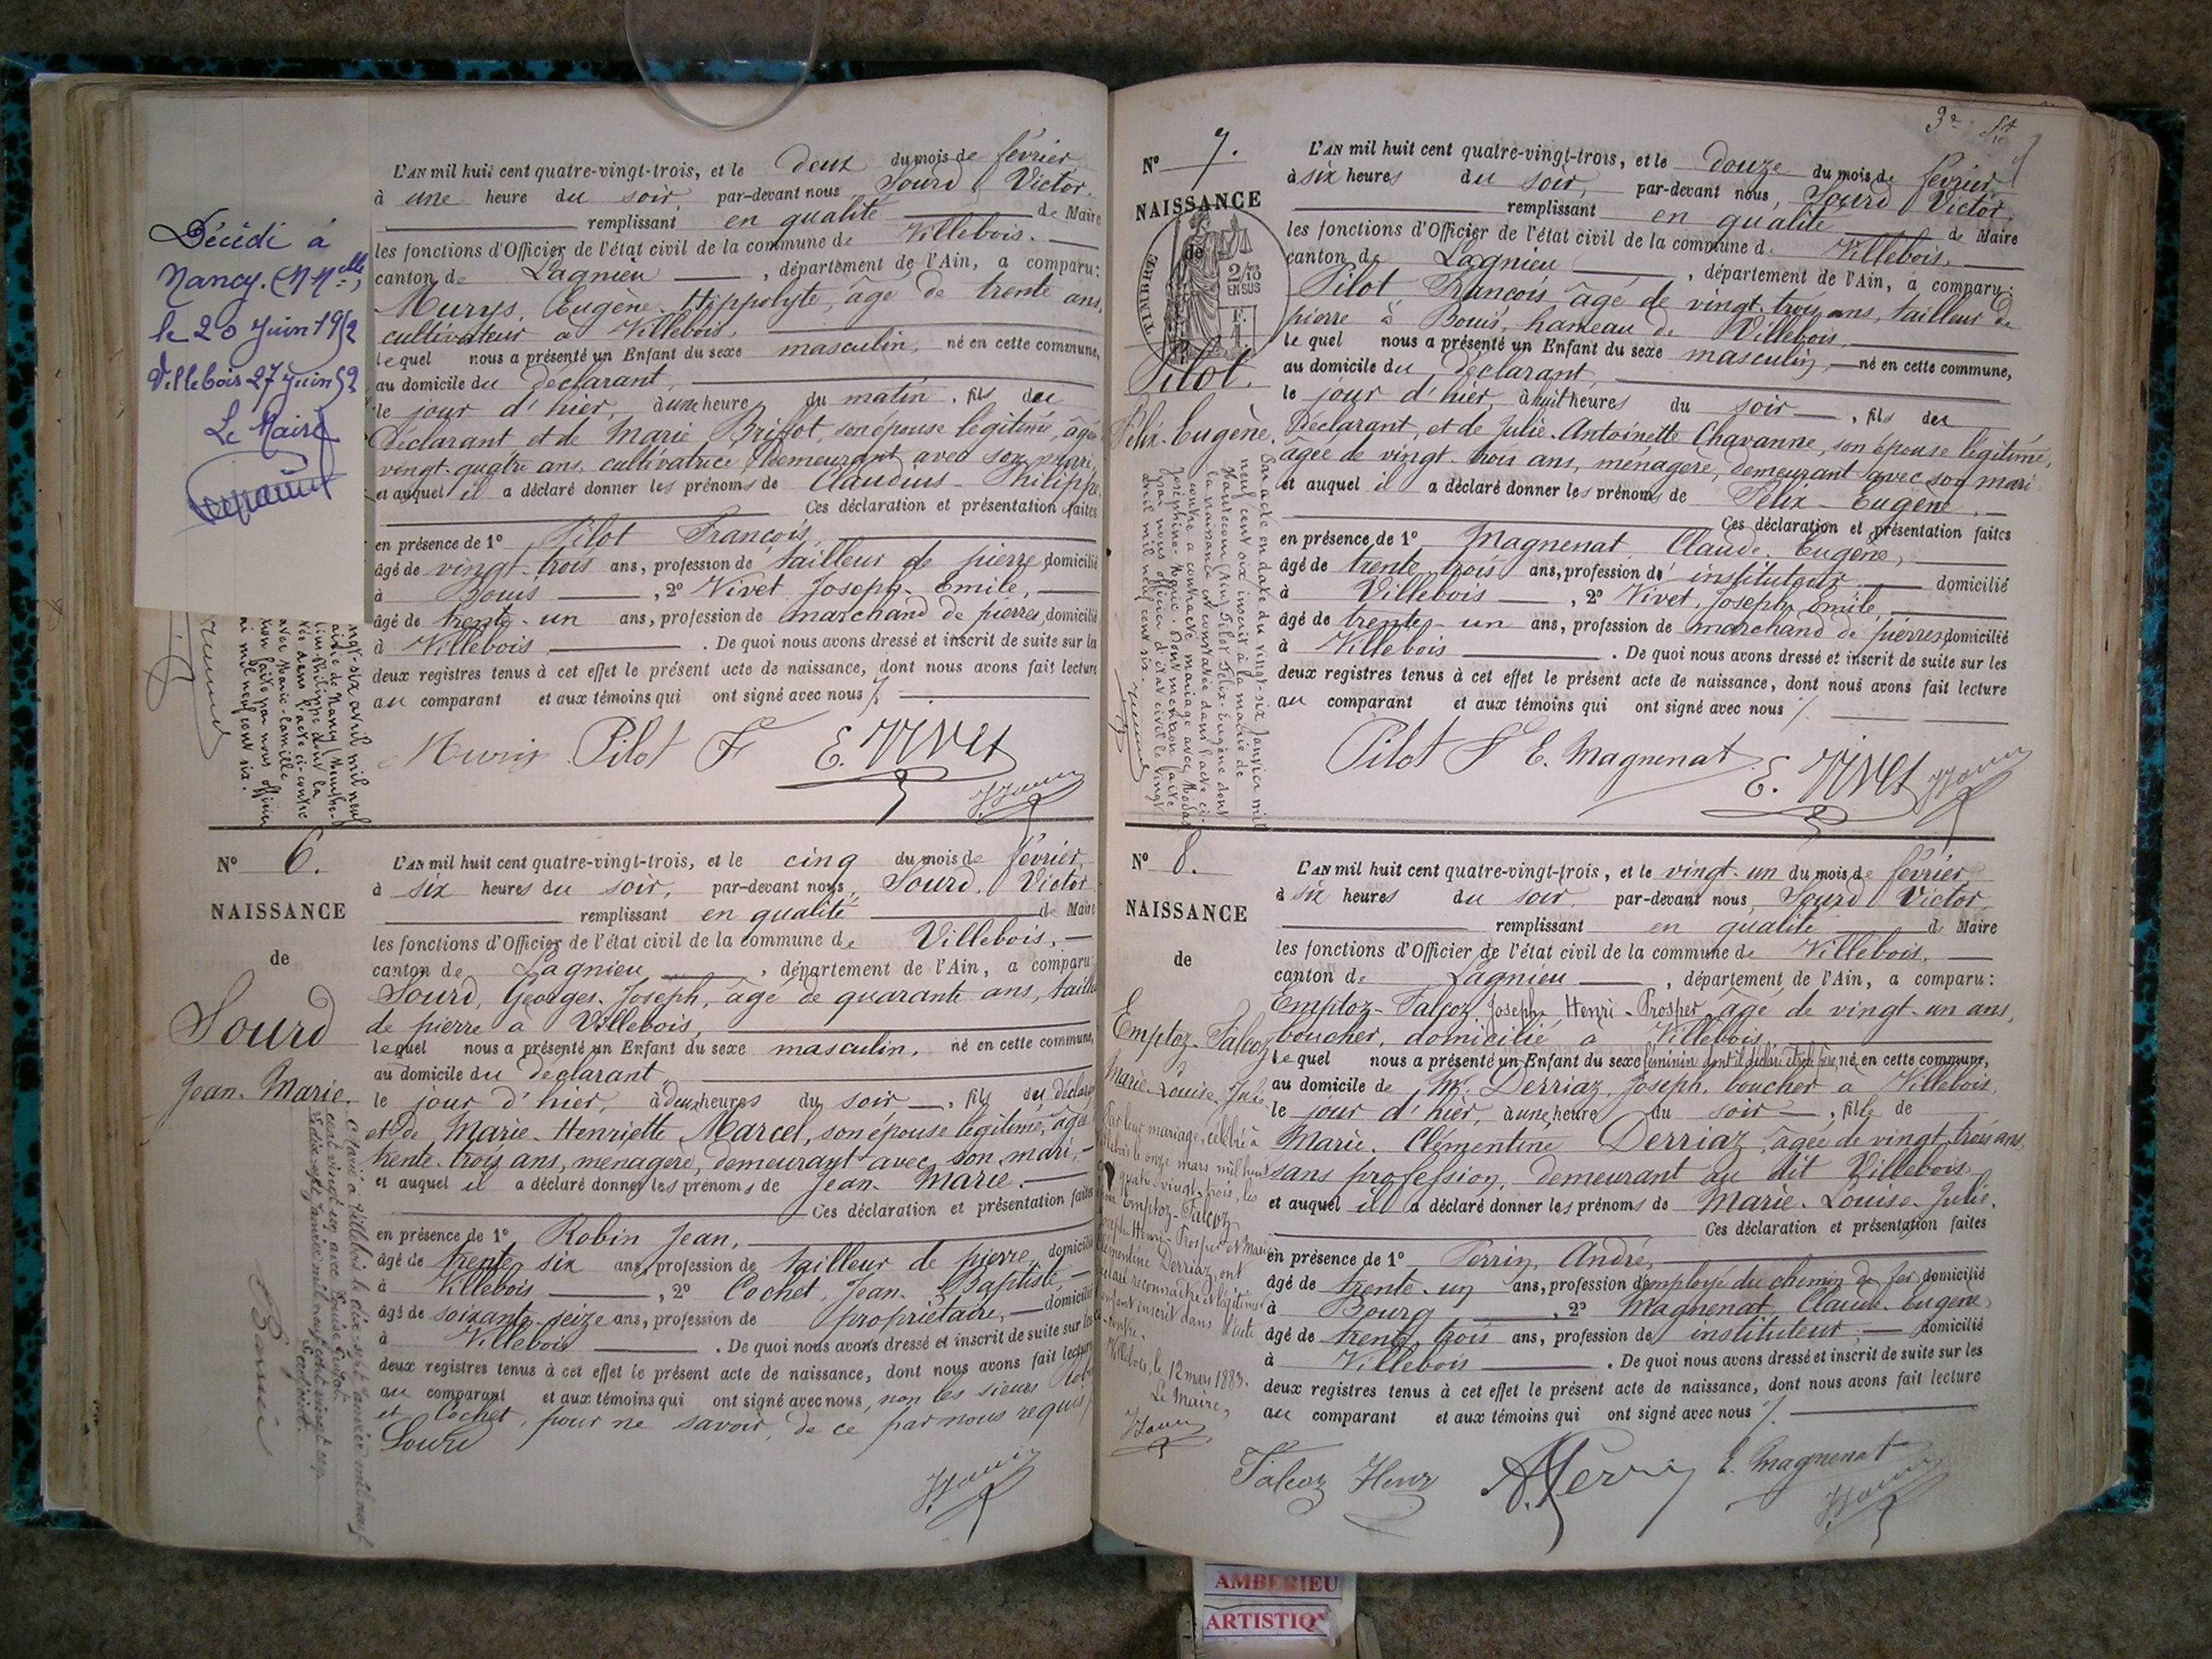 Décédé à
Nancy. (M Mlle)
le 20 Juin 1952
Villebois 27 Juin 52
Le Maire
L'AN mil huit cent quatre-vingt-trois, et le deux du mois de février
à une heure du soir, par-devant nous, Sourd Victor,
remplissant en qualité de Maire
les fonctions d'Officier de l'état civil de la commune de Villebois.
canton de Lagnieu, département de l'Ain, a comparu:
Murys, Eugène Hippolyte, âgé de trente ans,
cultivateur à Villebois,
lequel nous a présenté un Enfant du sexe masculin, né en cette commune,
au domicile du déclarant,
le jour d'hier, à une heure du matin, fils du
Déclarant et de Marie Briffot, son épouse légitime, âgée
vingt-quatre ans, cultivatrice, demeurant avec son mari,
et auquel il a déclaré donner les prénoms de Claudius-Philippe.
Ces déclaration et présentation faites
en présence de 1° Pilot François,
âgé de vingt-trois ans, profession de tailleur de pierre, domicilié
à Bouis, 2° Vivet Joseph-Emile,
âgé de trente-un ans, profession de marchand de pierres, domicilié
à Villebois. De quoi nous avons dressé et inscrit de suite sur les
deux registres tenus à cet effet le présent acte de naissance, dont nous avons fait lecture
au comparant et aux témoins qui ont signé avec nous
ngt-six avril mil neuf
airie de Nancy (Meurthe-
dius-Philippe dont la
tée dans l'acte ci-contre
avec Marie-Camille
tion faite par nous officier
ai mil neuf cent six.
Pilot F E. Vivet
N° 6.
NAISSANCE
de
Sourd
Jean-Marie.
L'AN mil huit cent quatre-vingt-trois, et le cinq du mois de février
à six heures du soir, par-devant nous, Sourd, Victor
remplissant en qualité de Maire
les fonctions d'Officier de l'état civil de la commune de Villebois,
canton de Lagnieu, département de l'Ain, a comparu:
Sourd, Georges-Joseph, âgé de quarante ans, taille
de pierre à Villebois,
lequel nous a présenté un Enfant du sexe masculin, né en cette commune,
au domicile du déclarant,
le jour d'hier, à deux heures du soir, fils du déclara
et de Marie-Henriette Marcel, son épouse légitime, âgée
trente-trois ans, ménagère, demeurant avec son mari,
et auquel il a déclaré donner les prénoms de Jean-Marie.
Ces déclaration et présentation faites
en présence de 1° Robin Jean,
âgé de trente six ans, profession de tailleur de pierre, domicilié
à Villebois, 2° Cochet, Jean-Baptiste
âgé de soixante-seize ans, profession de propriétaire, domicilié
à Villebois. De quoi nous avons dressé et inscrit de suite sur les
deux registres tenus à cet effet le présent acte de naissance, dont nous avons fait lecture
au comparant et aux témoins qui ont signé avec nous, non les sieurs Robin
et Cochet, pour ne savoir, de ce par nous requis
Sourd
Marié à Villebois le dix-sept janvier mil neuf
cent vingt-un avec Louise
3e
N° 7.
NAISSANCE
de
TIMBRE
2/10 EN SUS
Pilot.
Félix-Eugène.
L'AN mil huit cent quatre-vingt-trois, et le douze du mois de février
à six heures du soir, par-devant nous, Sourd Victor,
remplissant en qualité de Maire
les fonctions d'Officier de l'état civil de la commune de Villebois,
canton de Lagnieu, département de l'Ain, a comparu:
Pilot François, âgé de vingt-trois ans, tailleur de
pierre à Bouis, hameau de Villebois,
lequel nous a présenté un Enfant du sexe masculin, né en cette commune,
au domicile du déclarant,
le jour d'hier, à huit heures du soir, fils du
Déclarant, et de Julie-Antoinette Chavanne, son épouse légitime,
âgée de vingt-trois ans, ménagère, demeurant avec son mari
et auquel il a déclaré donner les prénoms de Félix-Eugène.
Ces déclaration et présentation faites
en présence de 1° Magnenat, Claude-Eugène,
âgé de trente trois ans, profession d'instituteur domicilié
à Villebois, 2° Vivet, Joseph Emile,
âgé de trente-un ans, profession de marchand de pierres, domicilié
à Villebois. De quoi nous avons dressé et inscrit de suite sur les
deux registres tenus à cet effet le présent acte de naissance, dont nous avons fait lecture
au comparant et aux témoins qui ont signé avec nous
Par acte en date du vingt-six janvier mil
neuf cent six inscrit à la mairie de
(Ain) Pilot Félix-Eugène dont
la naissance est constatée dans l'acte ci-
contre a contracté mariage avec
Joséphine-Marie, dont mention faite
par nous officier d'état civil le vingt
avril mil neuf cent six.
Pilot F E. Magnenat E. Vivet
N° 8.
NAISSANCE
de
Emptoz-Falcoz
Marie-Louise-Julie
Par leur mariage, célébré à
Villebois le onze mars mil huit
quatre-vingt-trois, les
Emptoz-Falcoz
Joseph-Henri-Prosper et Marie
Clémentine Derriaz, ont
déclaré reconnaître et légitimer
l'enfant inscrit dans l'acte
ci-contre.
Villebois, le 12 mars 1883.
Le Maire,
L'AN mil huit cent quatre-vingt-trois, et le vingt-un du mois de février
à six heures du soir, par-devant nous, Sourd Victor,
remplissant en qualité de Maire
les fonctions d'Officier de l'état civil de la commune de Villebois,
canton de Lagnieu, département de l'Ain, a comparu:
Emptoz-Falcoz Joseph Henri-Prosper âgé de vingt-un ans,
boucher, domicilié à Villebois,
lequel nous a présenté un Enfant du sexe féminin dont il déclare être le père, né en cette commune,
au domicile de Mr Derriaz, Joseph, boucher à Villebois,
le jour d'hier, à une heure du soir, fille de
Marie-Clémentine Derriaz, âgée de vingt-trois ans,
sans profession, demeurant au dit Villebois
et auquel il a déclaré donner les prénoms de Marie-Louise-Julie.
Ces déclaration et présentation faites
en présence de 1° Perrin, André,
âgé de trente-un ans, profession d'employé du chemin de fer domicilié
à Bourg, 2° Magnenat, Claude-Eugène,
âgé de trente trois ans, profession de instituteur, domicilié
à Villebois. De quoi nous avons dressé et inscrit de suite sur les
deux registres tenus à cet effet le présent acte de naissance, dont nous avons fait lecture
au comparant et aux témoins qui ont signé avec nous
Falcoz Henri A. Perrin E. Magnenat
AMBERIEU
ARTISTIQ